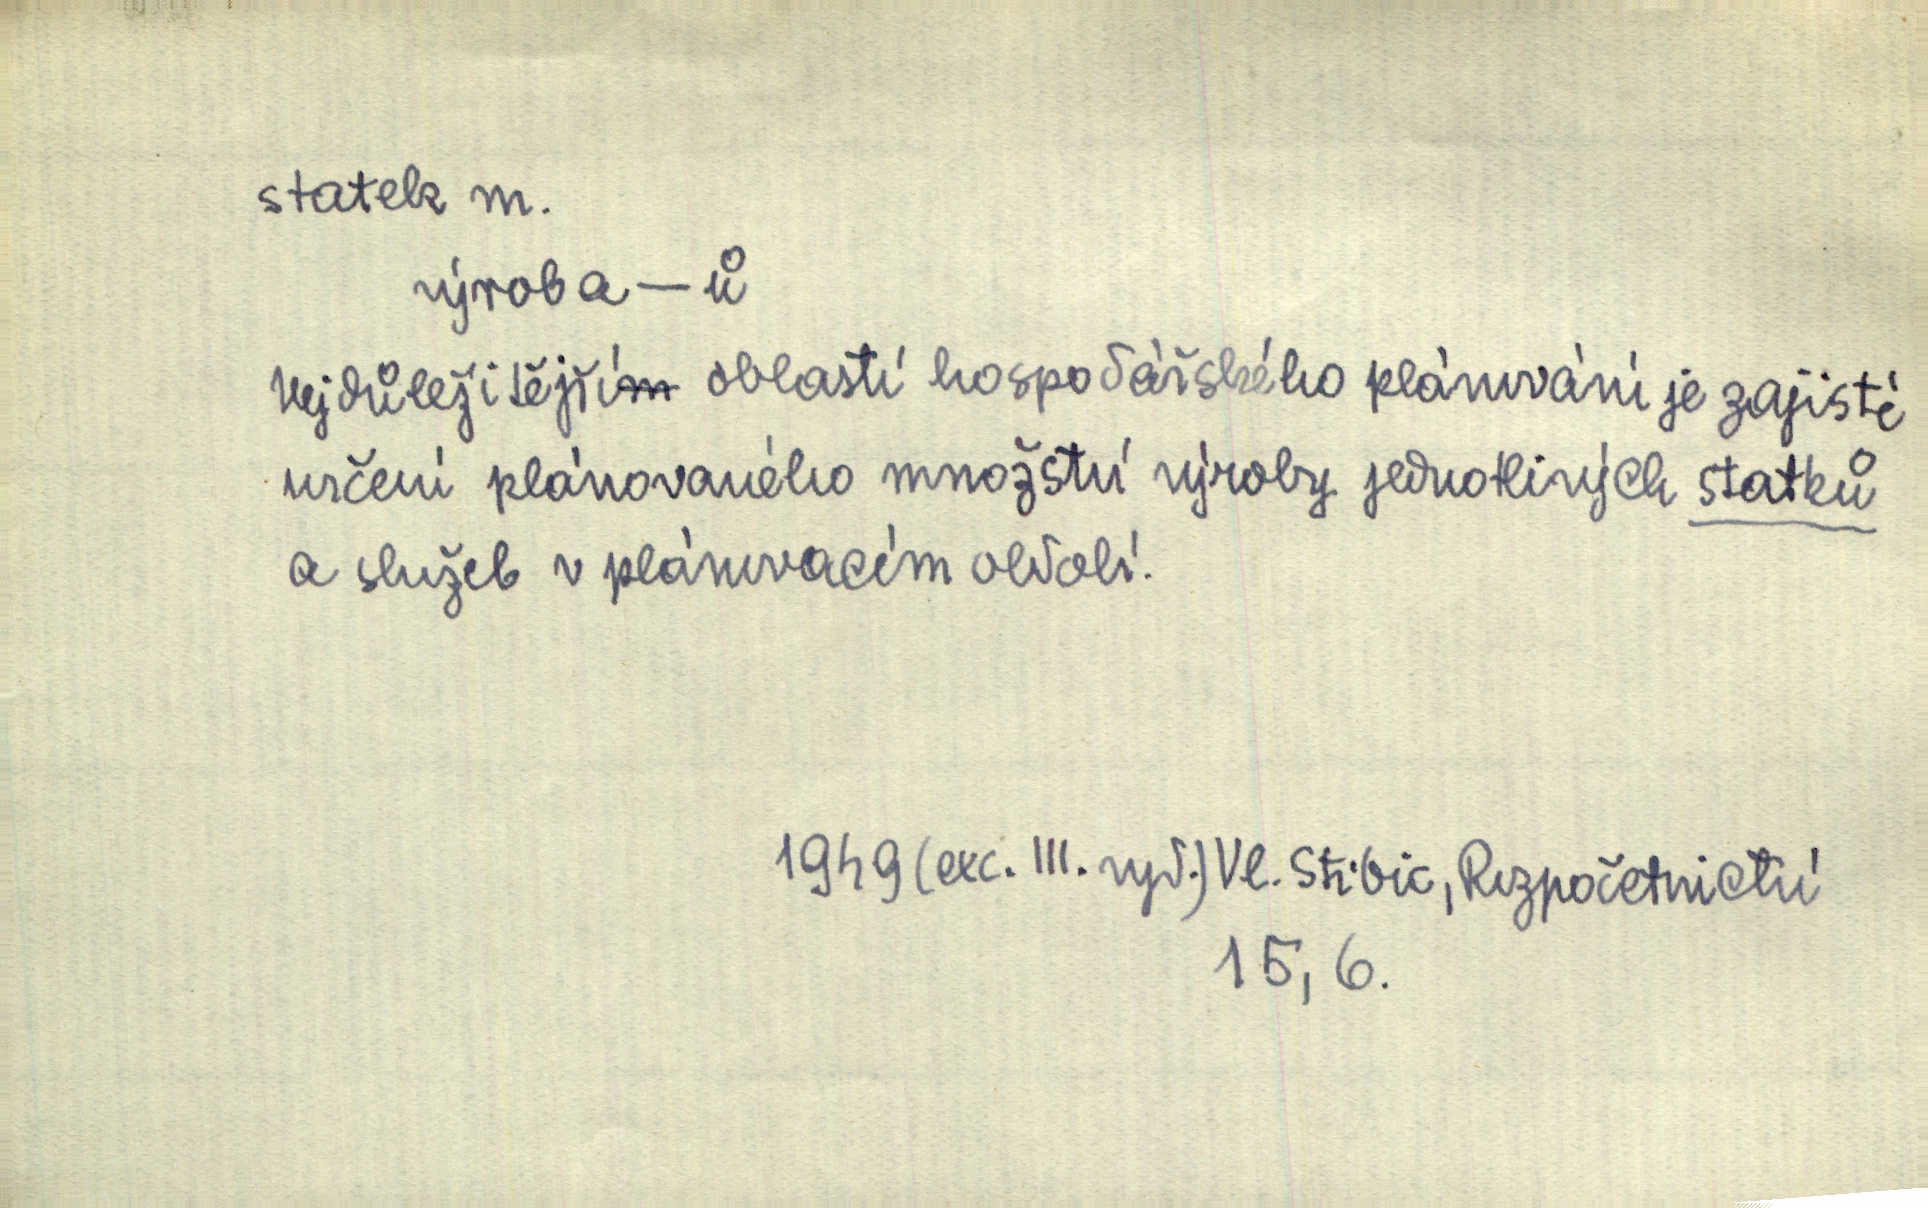 statek m.
výroba — ů
Nejdůležitějším oblastí hospodářského plánování je zajisté
určení plánovaného množství výroby jednotlivých statků
a služeb v plánovacím období.
1949 (exc. III. vyd.) Vl. Stříbic, Rozpočetnictví
15, 6.